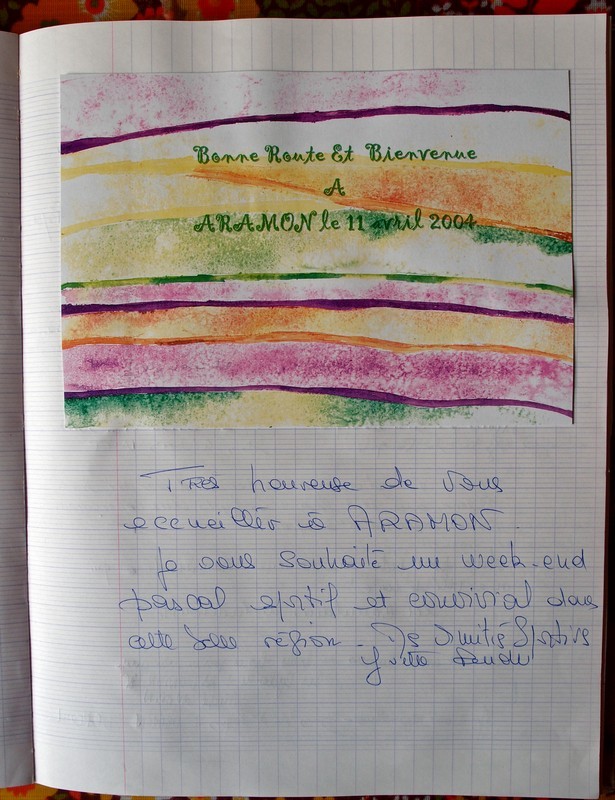 Bonne Route Et Bienvenue
A
ARAMON le 11 avril 2004
Très heureuse de vous
accueillir à ARAMON.
Je vous souhaite un week-end
pascal sportif et convivial dans
cette belle région. Mes Amitiés Sportives